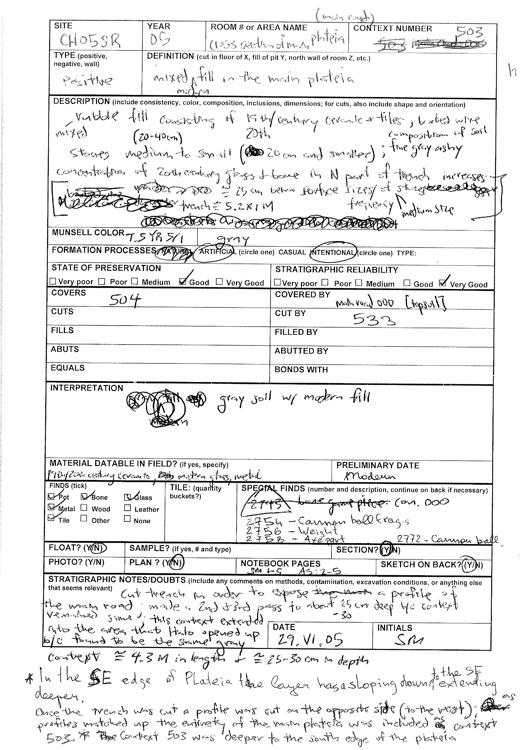 (main road)
SITE YEAR ROOM # or AREA NAME CONTEXT NUMBER
CH05SR 05 cross section of main plateia 503
TYPE (positive, negative, wall) DEFINITION (cut in floor of X, fill of pit Y, north wall of room Z, etc.)
Positive mixed fill in the main plateia
modern
DESCRIPTION (include consistency, color, composition, inclusions, dimensions; for cuts, also include shape and orientation)
rubble fill consisting of 19th/century ceramic + tiles, barbed wire
mixed (20-40cm) 20th composition of soil
stones medium to small (20cm and smaller); fine gray ashy
concentration of 20th century glass + bone in N part of trench increases
≅ 25 cm below surface
trench ≅ 5.2 x 1 M frequency medium size
MUNSELL COLOR 7.5 YR 5/1 gray
FORMATION PROCESSES: NATURAL ARTIFICIAL (circle one) CASUAL INTENTIONAL (circle one) TYPE:
STATE OF PRESERVATION STRATIGRAPHIC RELIABILITY
Very poor Poor Medium Good Very Good Very poor Poor Medium Good Very Good
COVERS 504 COVERED BY main road 000 [topsoil]
CUTS CUT BY 533
FILLS FILLED BY
ABUTS ABUTTED BY
EQUALS BONDS WITH
INTERPRETATION
gray soil w/ modern fill
MATERIAL DATABLE IN FIELD? (if yes, specify) PRELIMINARY DATE
19th/20th century ceramic, modern glass, metal Modern
FINDS (tick) TILE: (quantity buckets?) SPECIAL FINDS (number and description, continue on back if necessary)
Pot Bone Glass 2745 bone game piece con. 000
Metal Wood Leather 2754 - Cannon ball frags
Tile Other None 2756 - Weight
2758 - Axe part 2772 - Cannon ball
FLOAT? (Y/N) SAMPLE? (if yes, # and type) SECTION? (Y/N)
PHOTO? (Y/N) PLAN? (Y/N) NOTEBOOK PAGES SKETCH ON BACK? (Y/N)
STRATIGRAPHIC NOTES/DOUBTS (include any comments on methods, contamination, excavation conditions, or anything else that seems relevant)
Cut trench in order to expose a profile of
the main road, made a 2nd + 3rd pass to about 25 cm deep b/c context
-30
remained same, this context extended
into the area that Italo opened up
b/c found to be the same gray
DATE INITIALS
29.VI.05 SM
context ≅ 4.3 M in length + ≅ 25-30 cm in depth
* In the SE edge of Plateia the layer has a sloping down to the SE extending
deeper.
Once the trench was cut a profile was cut on the opposite side (to the west); as
profiles matched up the entirety of the main plateia was included as context
503. * Context 503 was deeper to the south edge of the plateia